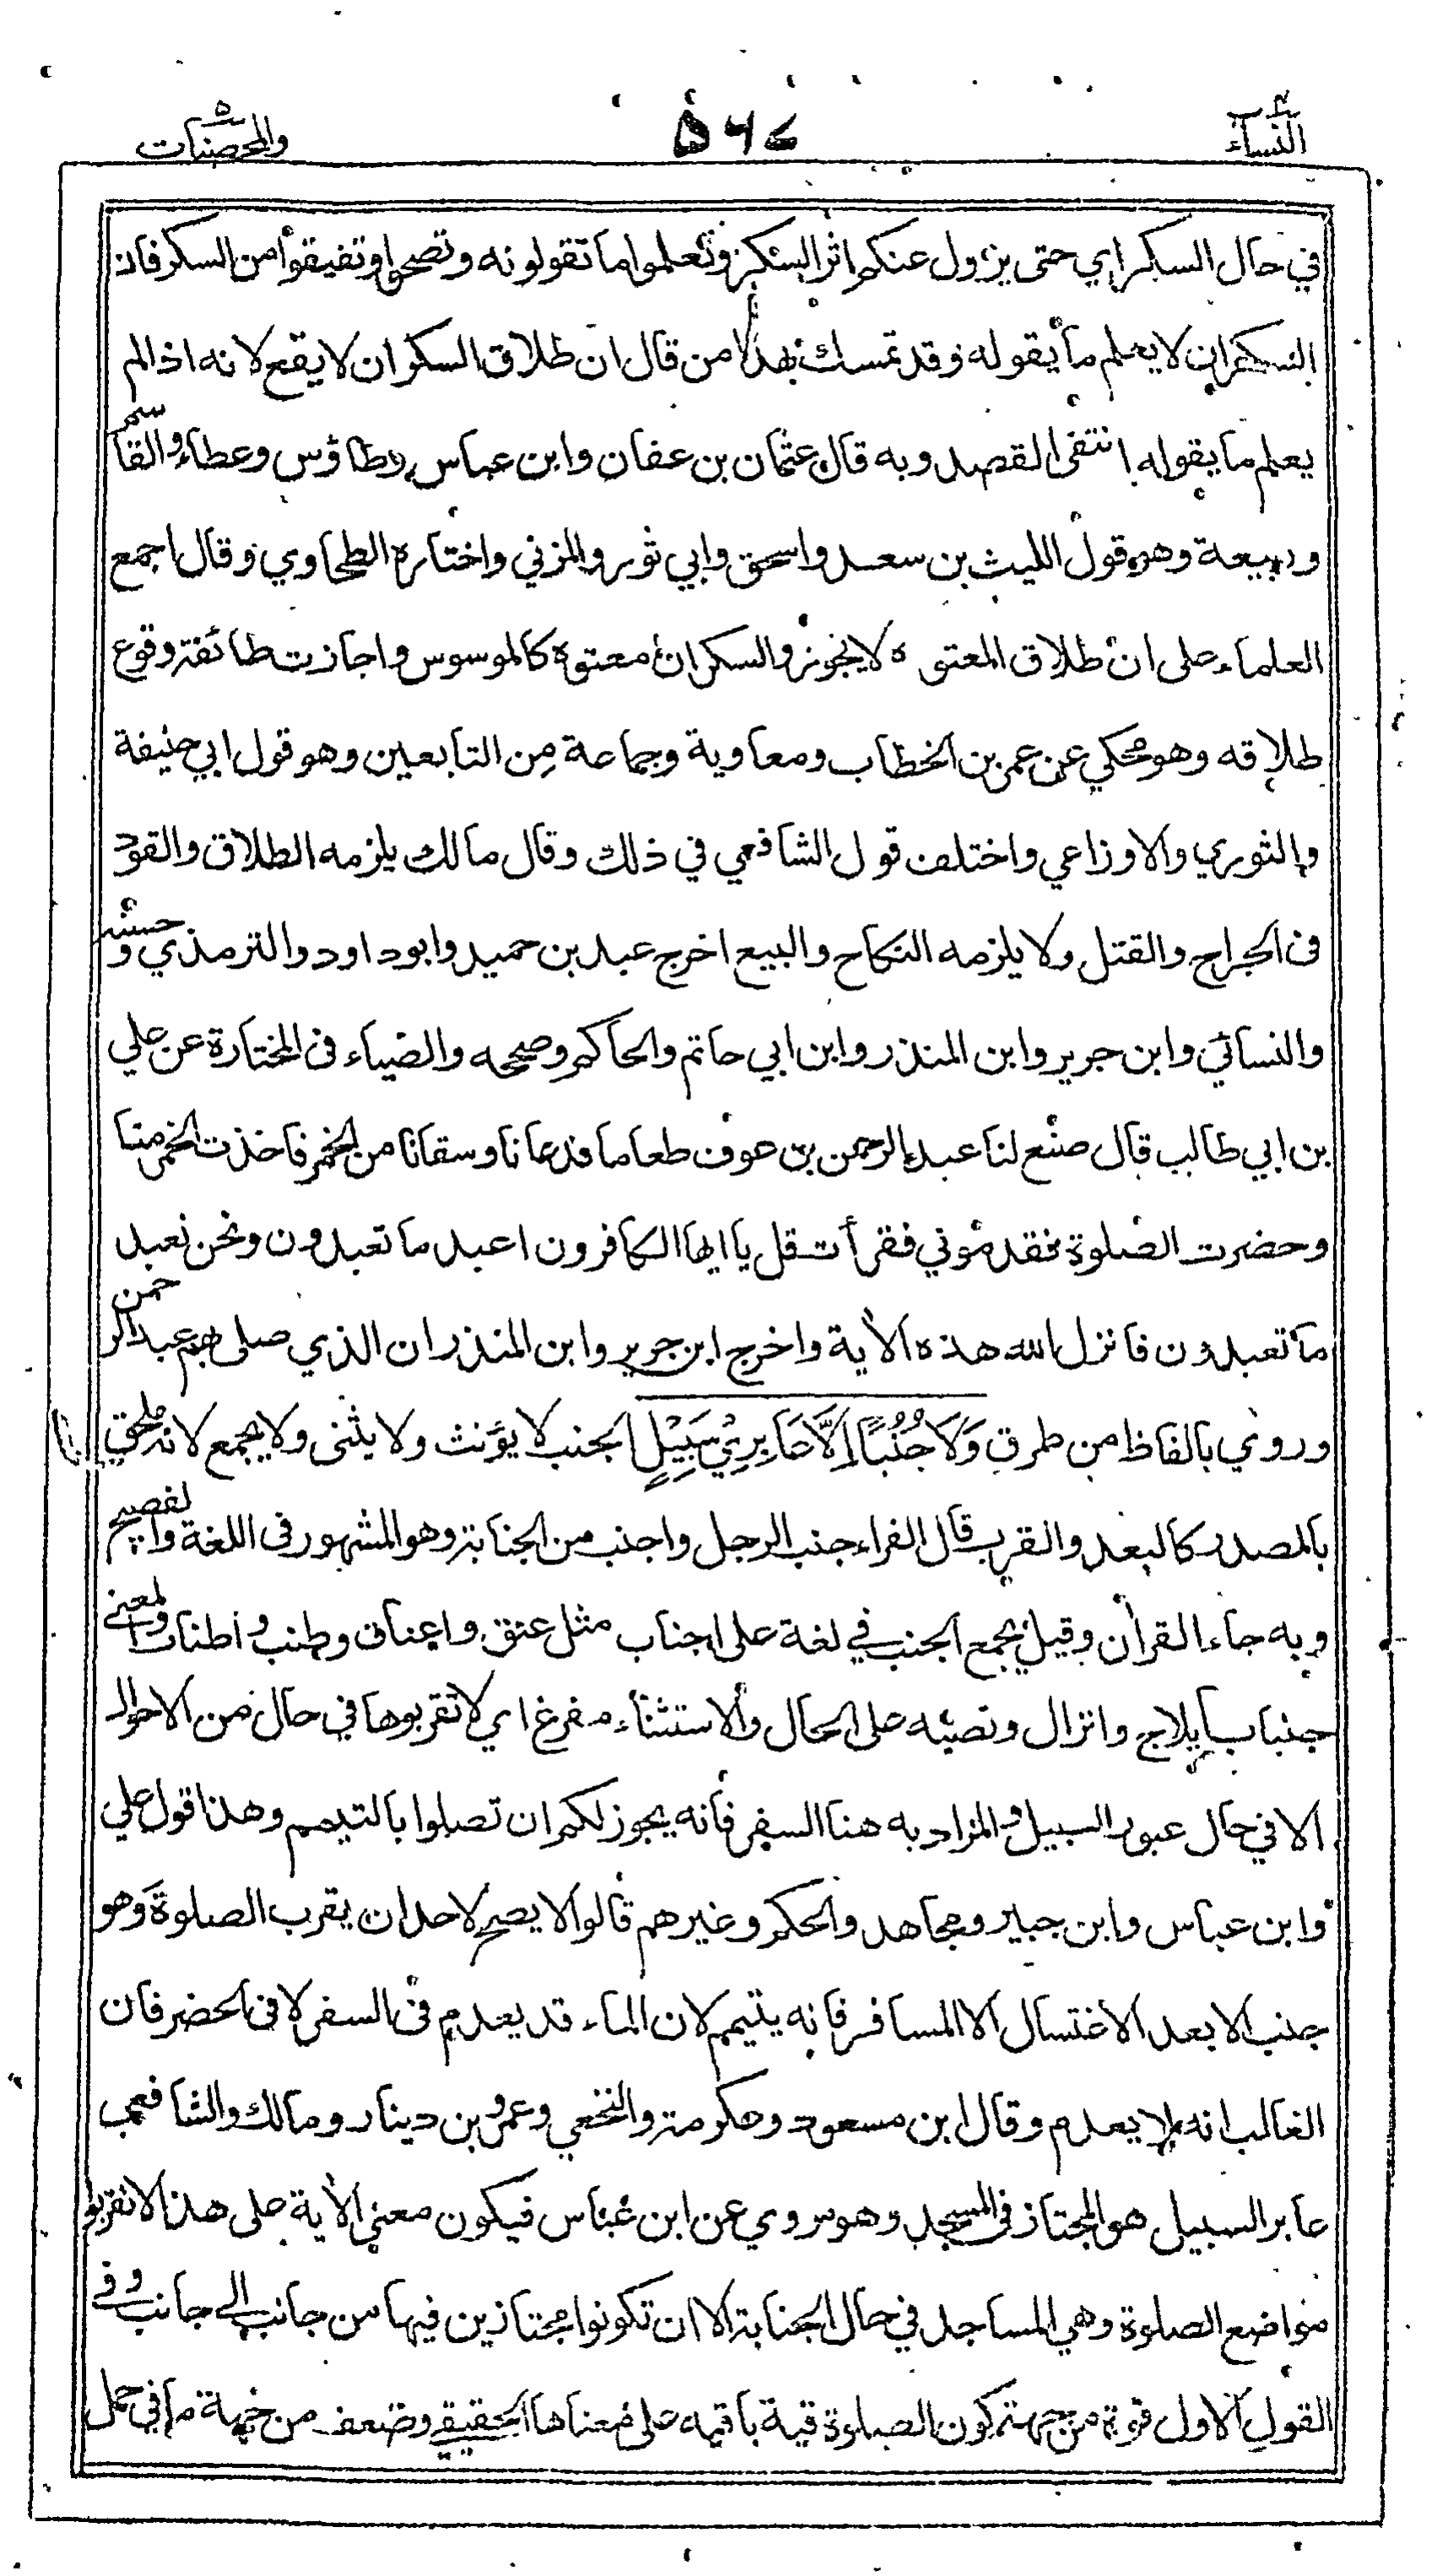 النساء ٤
٥٦٤
والمحصنات ٥
في حال السكر اي حتى يزول عنكم اثر السكر وتعلموا ما تقولونه وتصحوا وتفيقوا من السكر فان
السكران لا يعلم ما يقوله وقد تمسك بهذا من قال ان طلاق السكران لا يقع لانه اذا لم
يعلم ما يقوله انتفى القصد وبه قال عثمان بن عفان وابن عباس وطاؤس وعطاء والقاسم
وربيعة وهو قول الليث بن سعد واسحق وابي ثور والمزني واختاره الطحاوي وقال اجمع
العلماء على ان طلاق المعتوه لا يجوز والسكران معتوه كالموسوس واجازت طائفة وقوع
طلاقه وهو محكي عن عمر بن الخطاب ومعاوية وجماعة من التابعين وهو قول ابي حنيفة
والثوري والاوزاعي واختلف قول الشافعي في ذلك وقال مالك يلزمه الطلاق والقود
في الجراح والقتل ولا يلزمه النكاح والبيع اخرج عبد بن حميد وابو داود والترمذي وحسنه
والنسائي وابن جرير وابن المنذر وابن ابي حاتم والحاكم وصححه والضياء في المختارة عن علي
بن ابي طالب قال صنع لنا عبد الرحمن بن عوف طعاما فدعانا وسقانا من الخمر فاخذت الخمر منا
وحضرت الصلوة فقدموني فقرأت قل يا ايها الكافرون اعبد ما تعبدون ونحن نعبد
ما تعبدون فانزل الله هذه الأية واخرج ابن جرير وابن المنذر ان الذي صلى بهم عبد الرحمن
وروي بالفاظ من طرق وَلَا جُنُبًا اِلَّا عَابِرِيْ سَبِيْلٍ الجنب لا يؤنث ولا يثنى ولا يجمع لانه ملحق
بالمصدر كالبعد والقرب قال الفراء جنب الرجل واجنب من الجنابة وهو المشهور في اللغة والفصيح
وبه جاء القرأن وقيل يجمع الجنب في لغة على اجناب مثل عنق واعناق وطنب واطناب والمعنى
جنبا بايلاج وانزال ونصبه على الحال والاستثناء مفرغ اي لا تقربوها في حال من الاحوال
الا في حال عبور السبيل والمراد به هنا السفر فانه يجوز لكم ان تصلوا بالتيمم وهذا قول علي
وابن عباس وابن جبير ومجاهد والحكم وغيرهم قالوا لا يصح لاحد ان يقرب الصلوة وهو
جنب الا بعد الاغتسال الا المسافر فانه يتيمم لان الماء قد يعدم في السفر لا في الحضر فان
الغالب انه لا يعدم وقال ابن مسعود وعكرمة والنخعي وعمرو بن دينار ومالك والشافعي
عابر السبيل هو المجتاز في المسجد وهو مروي عن ابن عباس فيكون معنى الأية على هذا لا تقربوا
مواضع الصلوة وهي المساجد في حال الجنابة الا ان تكونوا مجتازين فيها من جانب الى جانب وفي
القول الاول قوة من جهة كون الصلوة فيه باقية على معناها الحقيقي وضعف من جهة ما في حمل